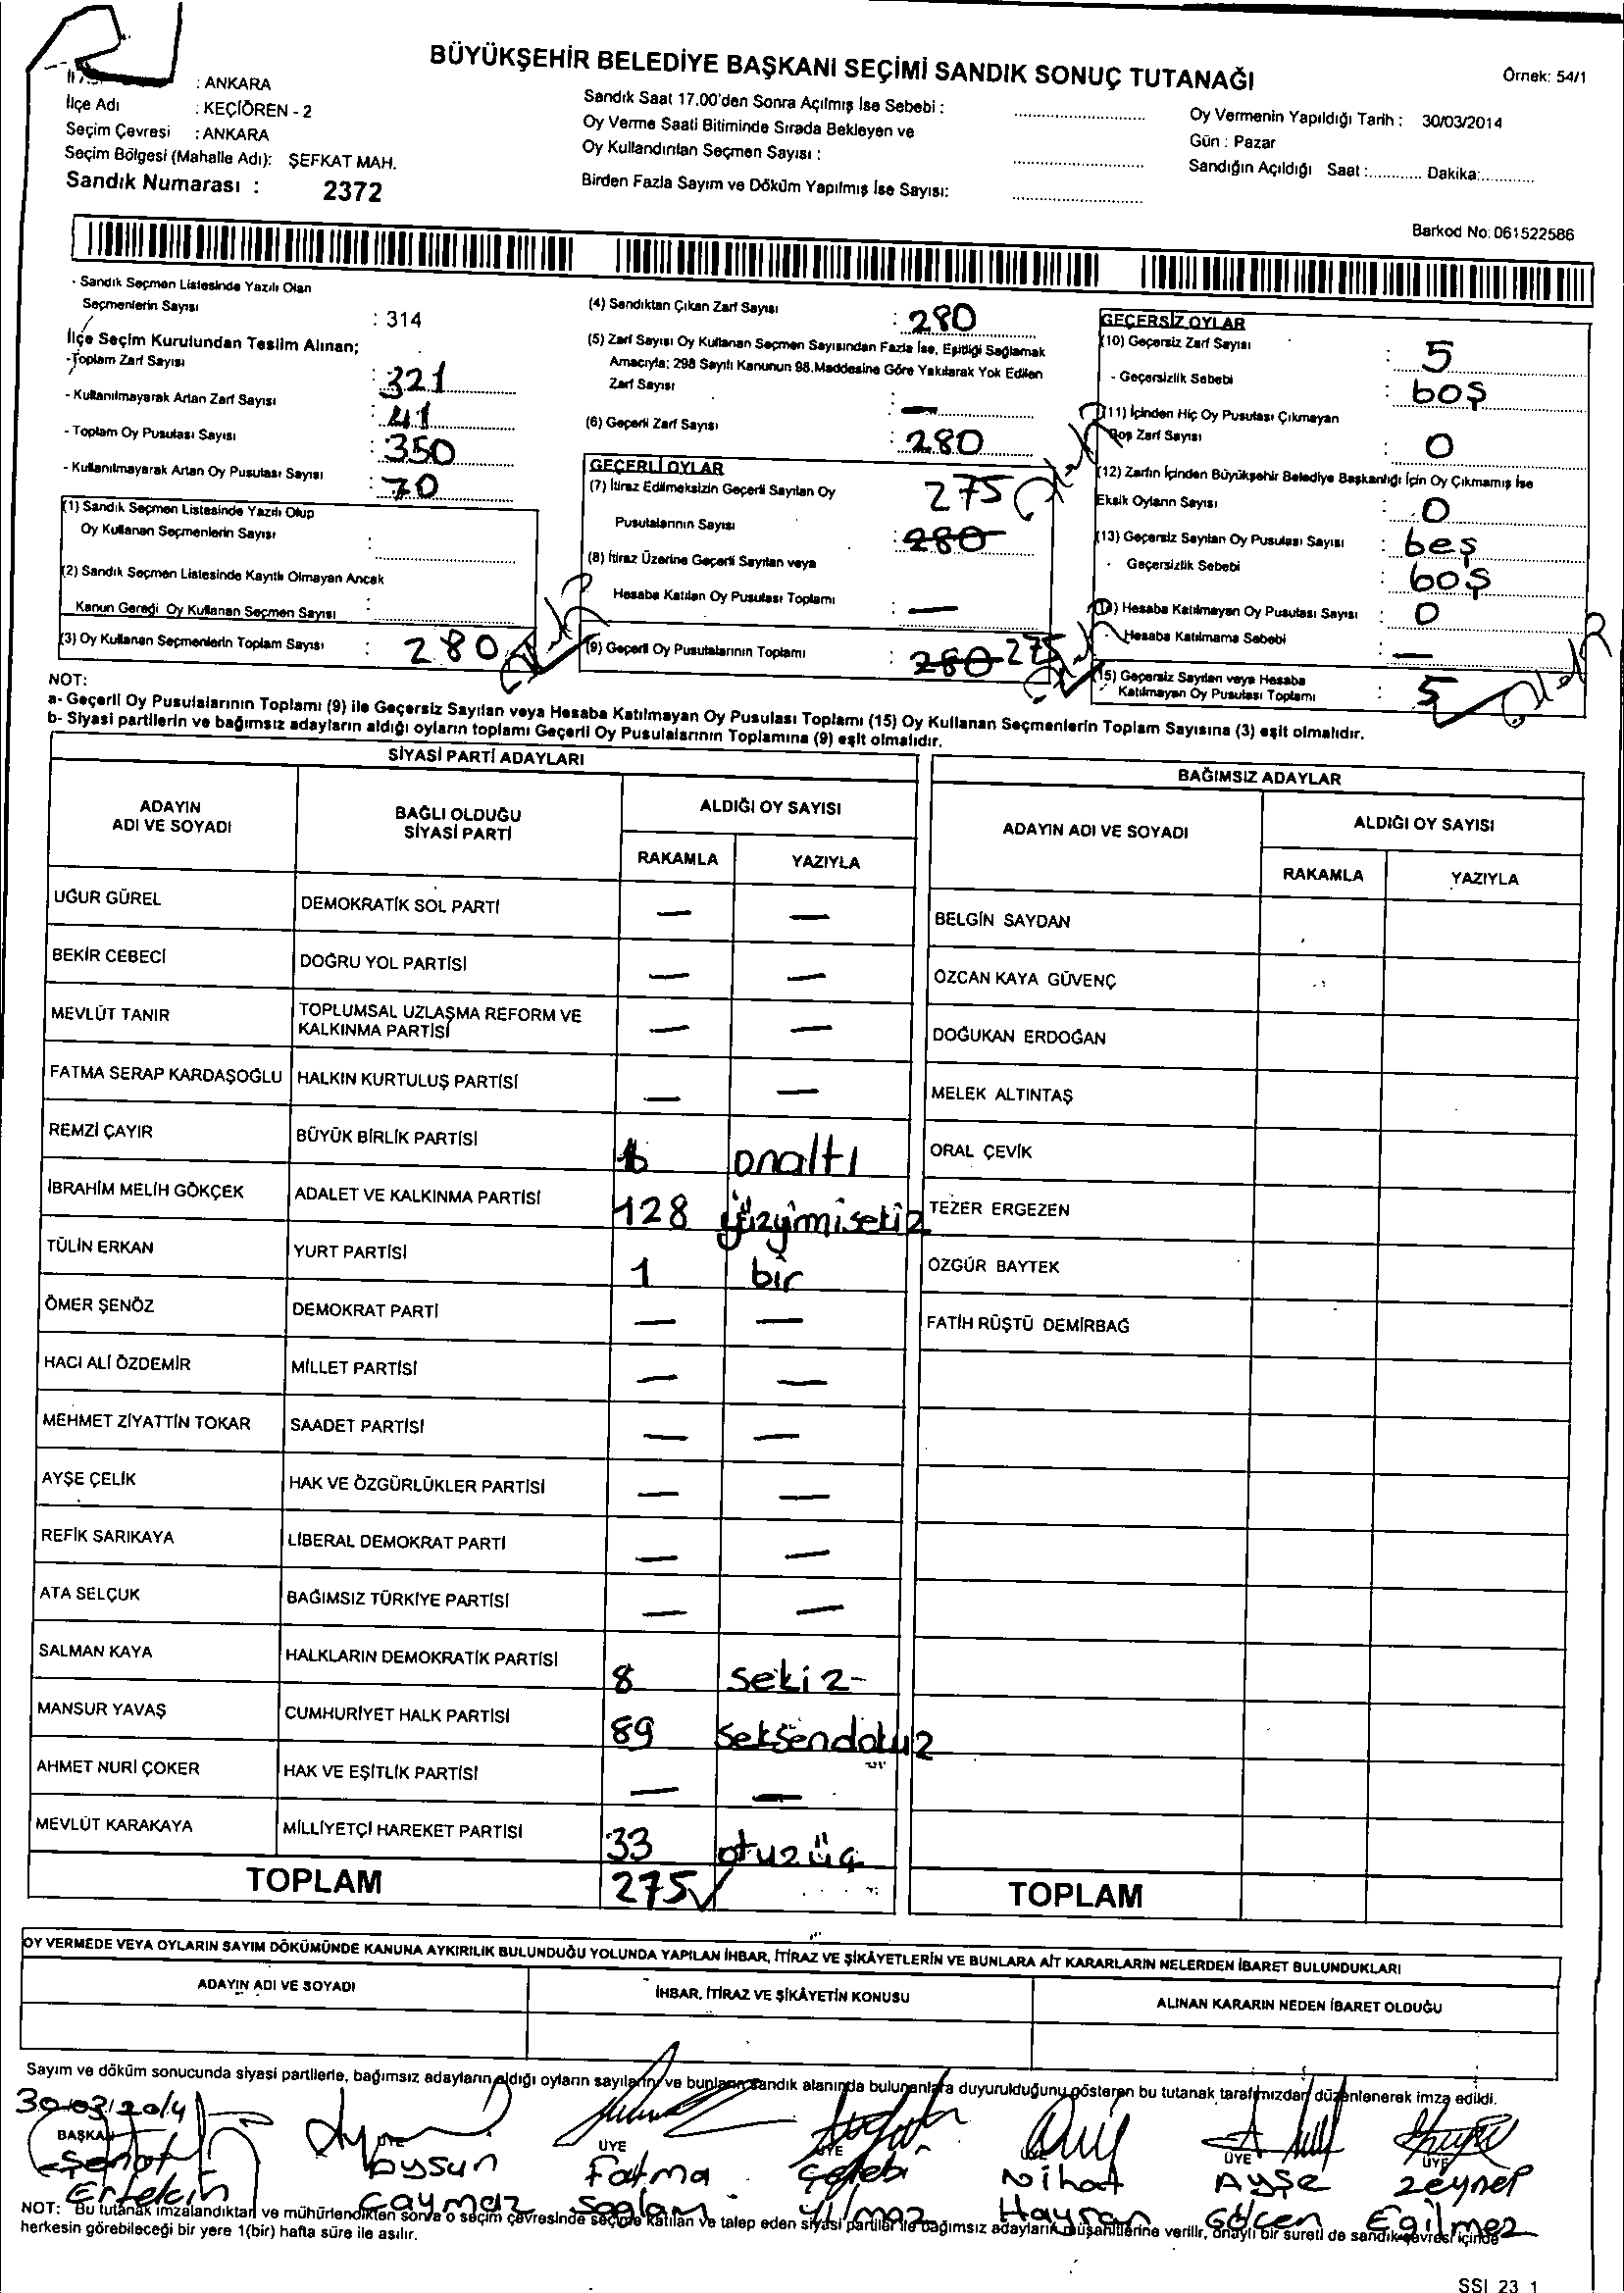 BÜYÜKŞEHİR BELEDİYE BAŞKANI SEÇİMİ SANDIK SONUÇ TUTANAĞI
Örnek: 54/1
: ANKARA
İlçe Adı : KEÇİÖREN - 2
Seçim Çevresi : ANKARA
Seçim Bölgesi (Mahalle Adı): ŞEFKAT MAH.
Sandık Numarası : 2372
Sandık Saat 17.00'den Sonra Açılmış İse Sebebi :
Oy Verme Saati Bitiminde Sırada Bekleyen ve
Oy Kullandırılan Seçmen Sayısı :
Birden Fazla Sayım ve Döküm Yapılmış İse Sayısı:
Oy Vermenin Yapıldığı Tarih : 30/03/2014
Gün : Pazar
Sandığın Açıldığı Saat :............ Dakika:............
Barkod No: 061522586
- Sandık Seçmen Listesinde Yazılı Olan
Seçmenlerin Sayısı : 314
İlçe Seçim Kurulundan Teslim Alınan;
-Toplam Zarf Sayısı : 321
- Kullanılmayarak Artan Zarf Sayısı : 41
- Toplam Oy Pusulası Sayısı : 350
- Kullanılmayarak Artan Oy Pusulası Sayısı : 70
(1) Sandık Seçmen Listesinde Yazılı Olup
Oy Kullanan Seçmenlerin Sayısı :
(2) Sandık Seçmen Listesinde Kayıtlı Olmayan Ancak
Kanun Gereği Oy Kullanan Seçmen Sayısı :
(3) Oy Kullanan Seçmenlerin Toplam Sayısı : 280
(4) Sandıktan Çıkan Zarf Sayısı : 280
(5) Zarf Sayısı Oy Kullanan Seçmen Sayısından Fazla İse, Eşitliği Sağlamak
Amacıyla; 298 Sayılı Kanunun 98.Maddesine Göre Yakılarak Yok Edilen
Zarf Sayısı : —
(6) Geçerli Zarf Sayısı : 280
GEÇERLİ OYLAR
(7) İtiraz Edilmeksizin Geçerli Sayılan Oy 275
Pusulalarının Sayısı : 280
(8) İtiraz Üzerine Geçerli Sayılan veya
Hesaba Katılan Oy Pusulası Toplamı : —
(9) Geçerli Oy Pusulalarının Toplamı : 280 275
GEÇERSİZ OYLAR
(10) Geçersiz Zarf Sayısı : 5
- Geçersizlik Sebebi : boş
(11) İçinden Hiç Oy Pusulası Çıkmayan
Boş Zarf Sayısı : 0
(12) Zarfın İçinden Büyükşehir Belediye Başkanlığı İçin Oy Çıkmamış İse
Eksik Oyların Sayısı : 0
(13) Geçersiz Sayılan Oy Pusulası Sayısı : beş
- Geçersizlik Sebebi : boş
(14) Hesaba Katılmayan Oy Pusulası Sayısı : 0
- Hesaba Katılmama Sebebi : —
(15) Geçersiz Sayılan veya Hesaba
Katılmayan Oy Pusulası Toplamı : 5
NOT:
a- Geçerli Oy Pusulalarının Toplamı (9) ile Geçersiz Sayılan veya Hesaba Katılmayan Oy Pusulası Toplamı (15) Oy Kullanan Seçmenlerin Toplam Sayısına (3) eşit olmalıdır.
b- Siyasi partilerin ve bağımsız adayların aldığı oyların toplamı Geçerli Oy Pusulalarının Toplamına (9) eşit olmalıdır.
SİYASİ PARTİ ADAYLARI
ADAYIN ADI VE SOYADI BAĞLI OLDUĞU SİYASİ PARTİ ALDIĞI OY SAYISI
RAKAMLA YAZIYLA
UĞUR GÜREL DEMOKRATİK SOL PARTİ — —
BEKİR CEBECİ DOĞRU YOL PARTİSİ — —
MEVLÜT TANIR TOPLUMSAL UZLAŞMA REFORM VE KALKINMA PARTİSİ — —
FATMA SERAP KARDAŞOĞLU HALKIN KURTULUŞ PARTİSİ — —
REMZİ ÇAYIR BÜYÜK BİRLİK PARTİSİ 16 onaltı
İBRAHİM MELİH GÖKÇEK ADALET VE KALKINMA PARTİSİ 128 yüzyirmisekiz
TÜLİN ERKAN YURT PARTİSİ 1 bir
ÖMER ŞENÖZ DEMOKRAT PARTİ — —
HACI ALİ ÖZDEMİR MİLLET PARTİSİ — —
MEHMET ZİYATTİN TOKAR SAADET PARTİSİ — —
AYŞE ÇELİK HAK VE ÖZGÜRLÜKLER PARTİSİ — —
REFİK SARIKAYA LİBERAL DEMOKRAT PARTİ — —
ATA SELÇUK BAĞIMSIZ TÜRKİYE PARTİSİ — —
SALMAN KAYA HALKLARIN DEMOKRATİK PARTİSİ 8 sekiz
MANSUR YAVAŞ CUMHURİYET HALK PARTİSİ 89 seksendokuz
AHMET NURİ ÇOKER HAK VE EŞİTLİK PARTİSİ — —
MEVLÜT KARAKAYA MİLLİYETÇİ HAREKET PARTİSİ 33 otuzüç
TOPLAM 275
BAĞIMSIZ ADAYLAR
ADAYIN ADI VE SOYADI ALDIĞI OY SAYISI
RAKAMLA YAZIYLA
BELGİN SAYDAN
ÖZCAN KAYA GÜVENÇ
DOĞUKAN ERDOĞAN
MELEK ALTINTAŞ
ORAL ÇEVİK
TEZER ERGEZEN
ÖZGÜR BAYTEK
FATİH RÜŞTÜ DEMİRBAĞ
TOPLAM
OY VERMEDE VEYA OYLARIN SAYIM DÖKÜMÜNDE KANUNA AYKIRILIK BULUNDUĞU YOLUNDA YAPILAN İHBAR, İTİRAZ VE ŞİKÂYETLERİN VE BUNLARA AİT KARARLARIN NELERDEN İBARET BULUNDUKLARI
ADAYIN ADI VE SOYADI İHBAR, İTİRAZ VE ŞİKÂYETİN KONUSU ALINAN KARARIN NEDEN İBARET OLDUĞU
Sayım ve döküm sonucunda siyasi partilerle, bağımsız adayların aldığı oyların sayılarını ve bunların sandık alanında bulunanlara duyurulduğunu gösteren bu tutanak tarafımızdan düzenlenerek imza edildi.
30/03/2014
BAŞKAN ÜYE ÜYE ÜYE ÜYE ÜYE ÜYE
Aysun Fatma Çelebi Nihat Ayşe Zeynep
Ertekin Caymaz Sağlam Yılmaz Hayran Gökcen Eğilmez
NOT: Bu tutanak imzalandıktan ve mühürlendikten sonra o seçim çevresinde seçime katılan ve talep eden siyasi partiler ile bağımsız adayların müşahitlerine verilir, onaylı bir sureti de sandık çevresi içinde
herkesin görebileceği bir yere 1(bir) hafta süre ile asılır.
SSI 23 1